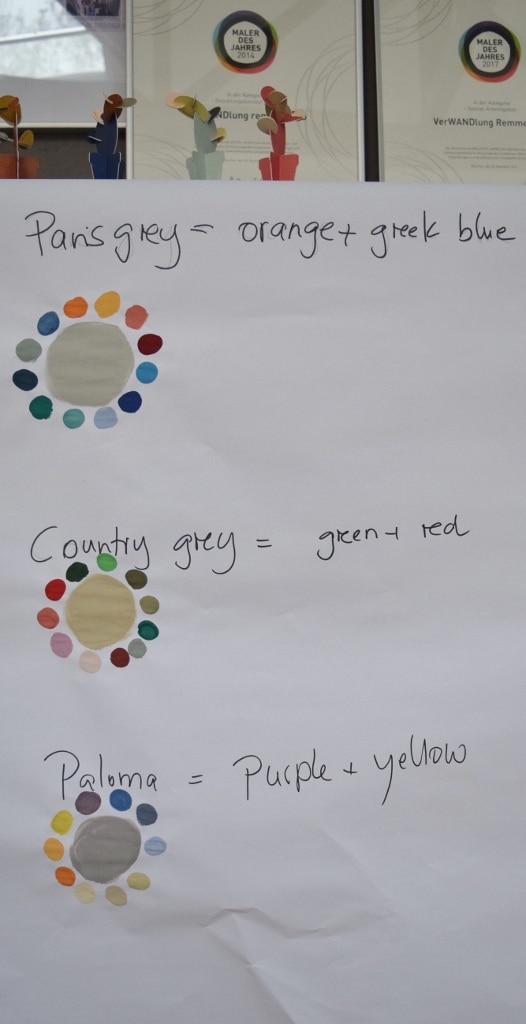 MALER
DES
JAHRES
2014
In der Kategorie
MALER
DES
JAHRES
2017
In der Kategorie
VerWANDlung Remme
Paris grey = orange + greek blue
Country grey = green + red
Paloma = Purple + yellow